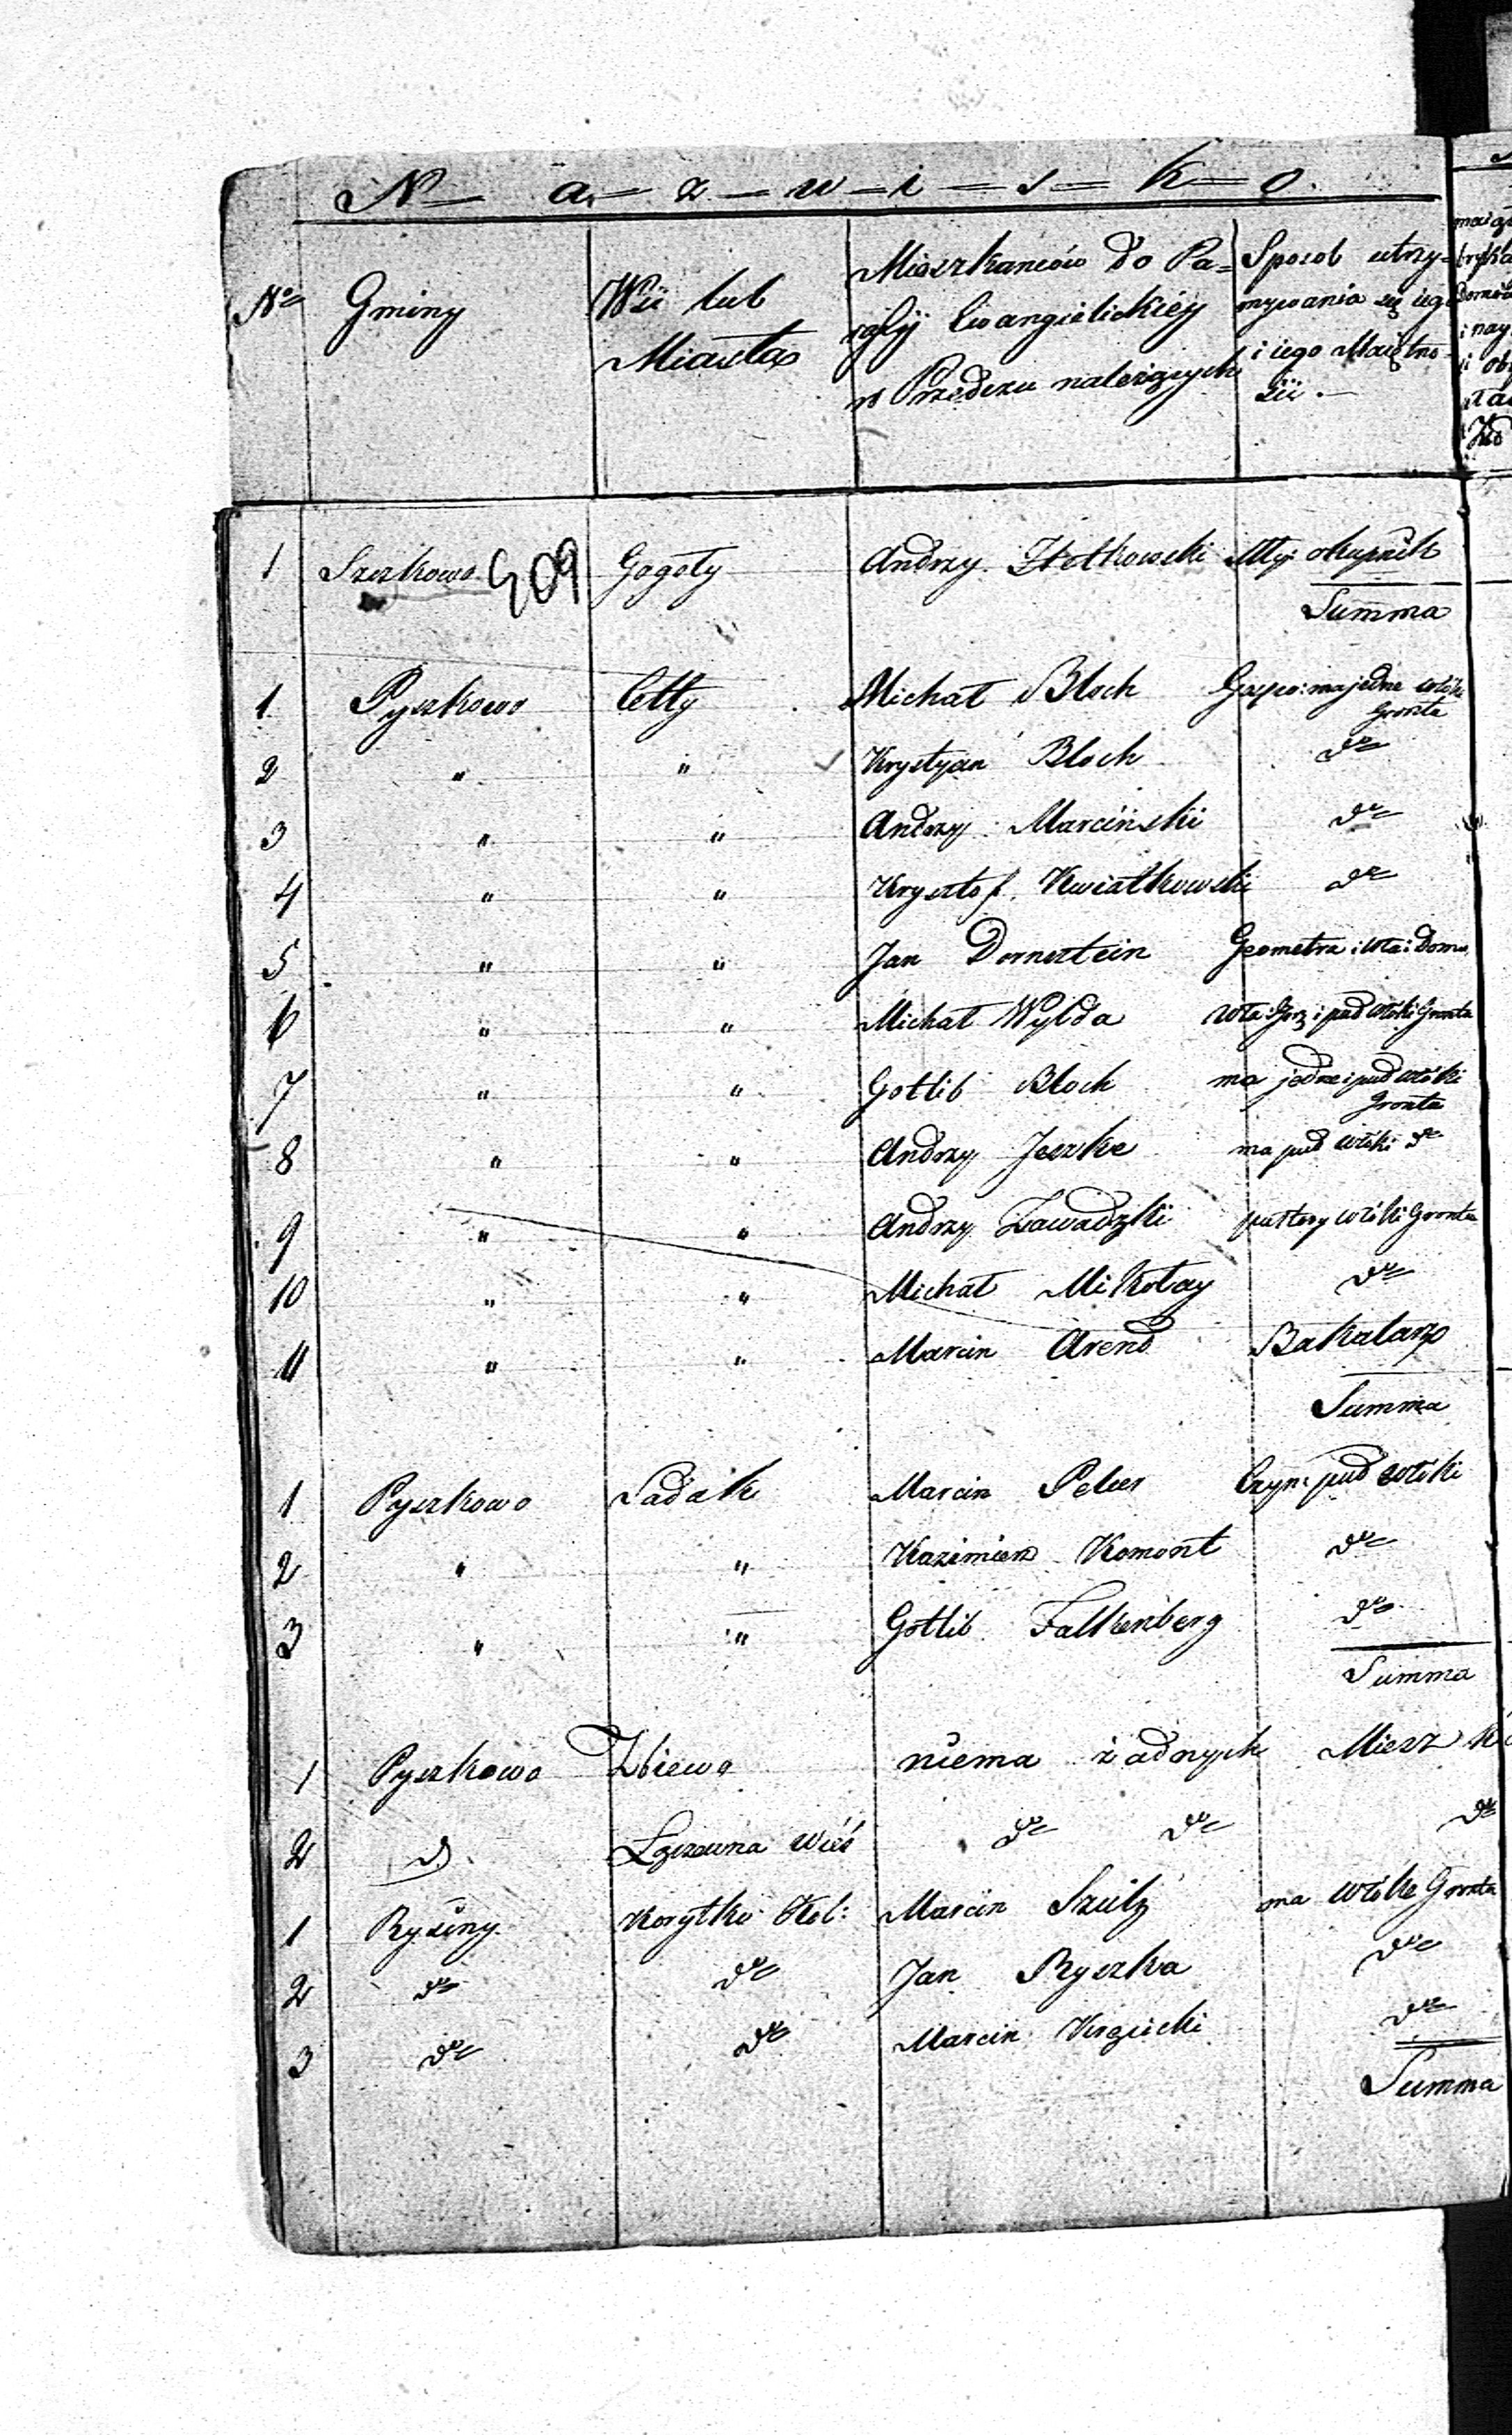 N - a - z - w - i - s - k - o.
No Gminy Wsi lub Miasta Mieszkanców do Parafij Ewangielickiéy w Przedczu należących Sposob utrzymywania się iego i iego Maiętnosci.
1 Szczkowo 509 Gogoły Andrzy okupnik
Summa
1 Pyszkowo Cetty Michał Bloch Gospo: ma jedne włóke Gronta
2 " " Krystyan Bloch do
3 " " Andrzy Marciński do
4 " " Krysztof Kwiatkowski do
5 " " Jan Dornsztein Geometra i Wła: Domu
6 " " Michał Wylda Wła: i puł włóki Gronta
7 " " Gotlib Bloch ma jedne i puł włóki Gronta
8 " " Andrzy Jeszke ma puł włóki do
9 " " Andrzy Zawadzki pułtory włóki Gronta
10 " " Michał Mikołay do
11 " " Marcin Arend Bakalarz
Summa
1 Pyszkowo Sadåk Marcin Czyn: puł włóki
2 " " Kazimierz Komont do
3 " " Gotlib Falkenberg do
Summa
1 Pyszkowo Zbiewo niema żadnych Miesz
2 d. wieś do do do
1 Rysiny Korytki Kol: Marcin Szulz ma włóke Gronta
2 do do Jan Ryszka do
3 do do Marcin do
Summa